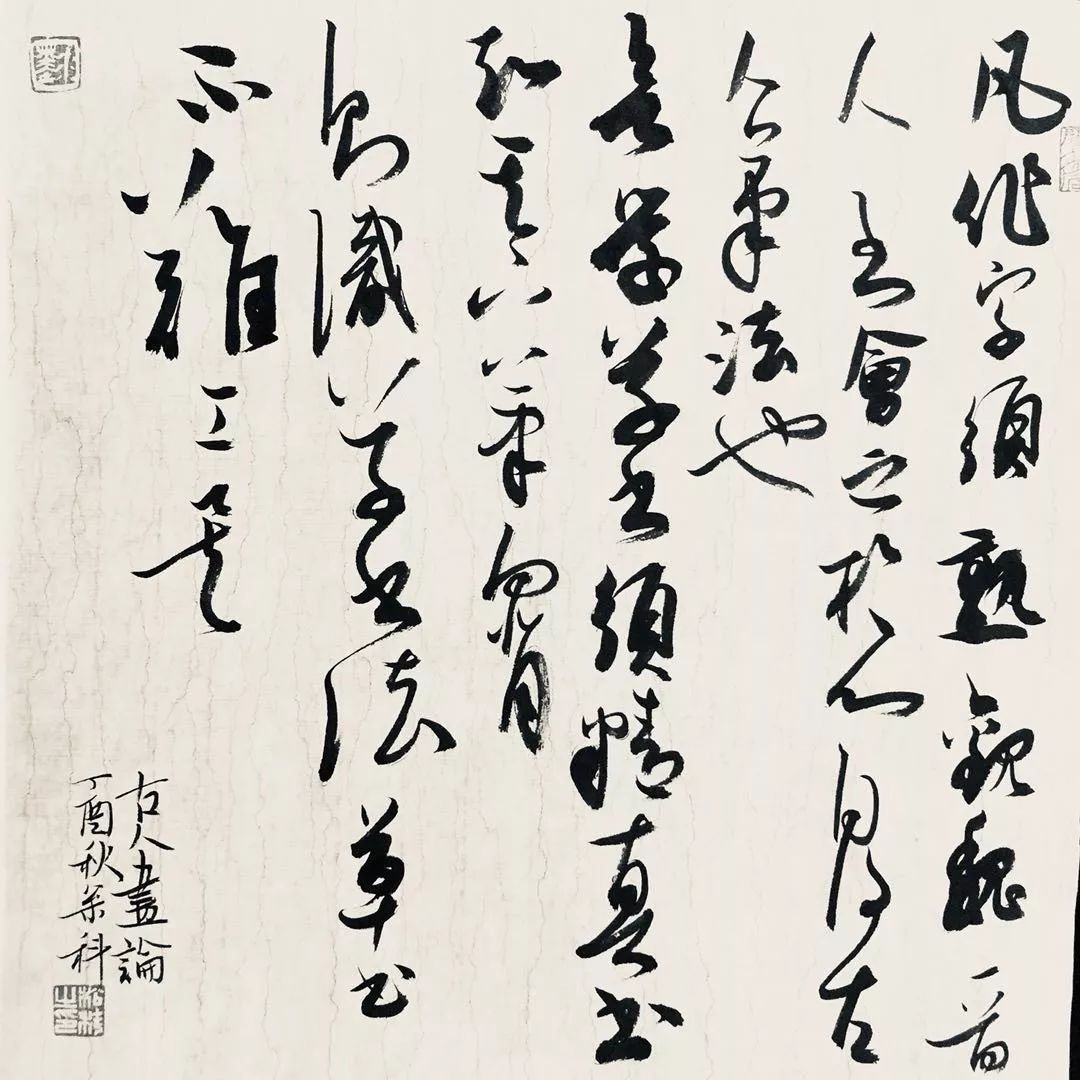 凡作字須熟觀魏晉
人書會之於心自得古
人筆法也
學草書須精真書
知其下筆向背
則識草書法草書
不難工矣
古人畫論
丁酉秋榮科